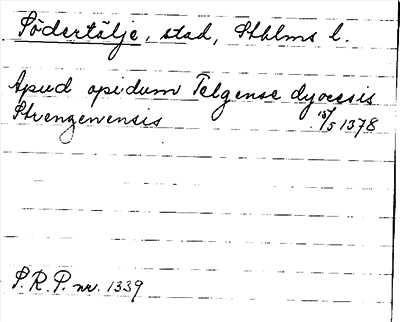 Södertälje, stad, Sthlms l.
Apud opidum Telgense dyocesis
Strengenensis 15/5 1378
S.R.P. nr. 1339